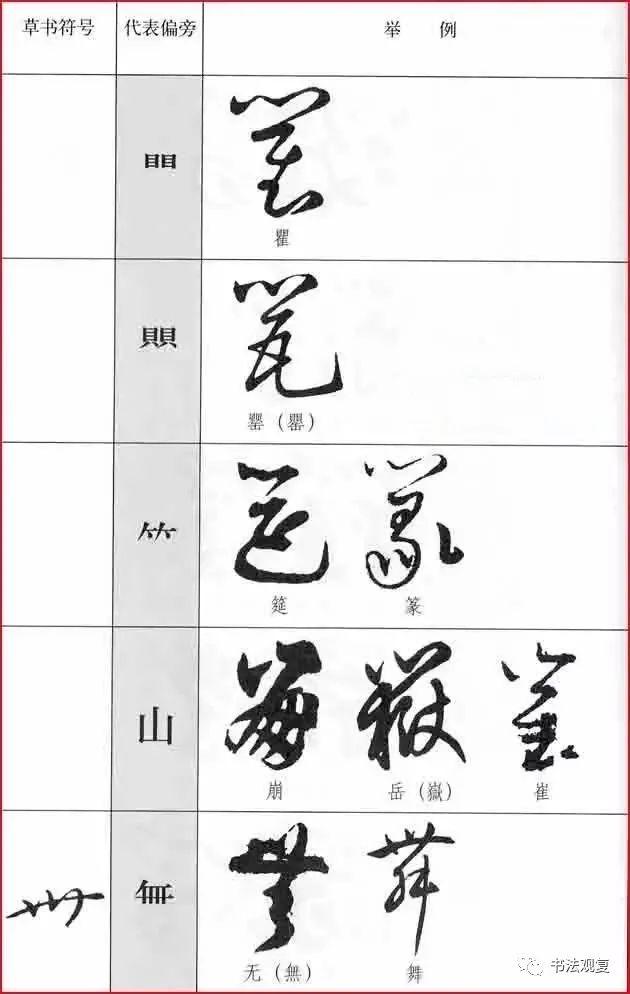 草书符号 代表偏旁 举例
䀠
瞿
賏
罂（罌）
⺮
筵 篆
山
崩 岳（嶽） 崔
無
无（無） 舞
书法观复